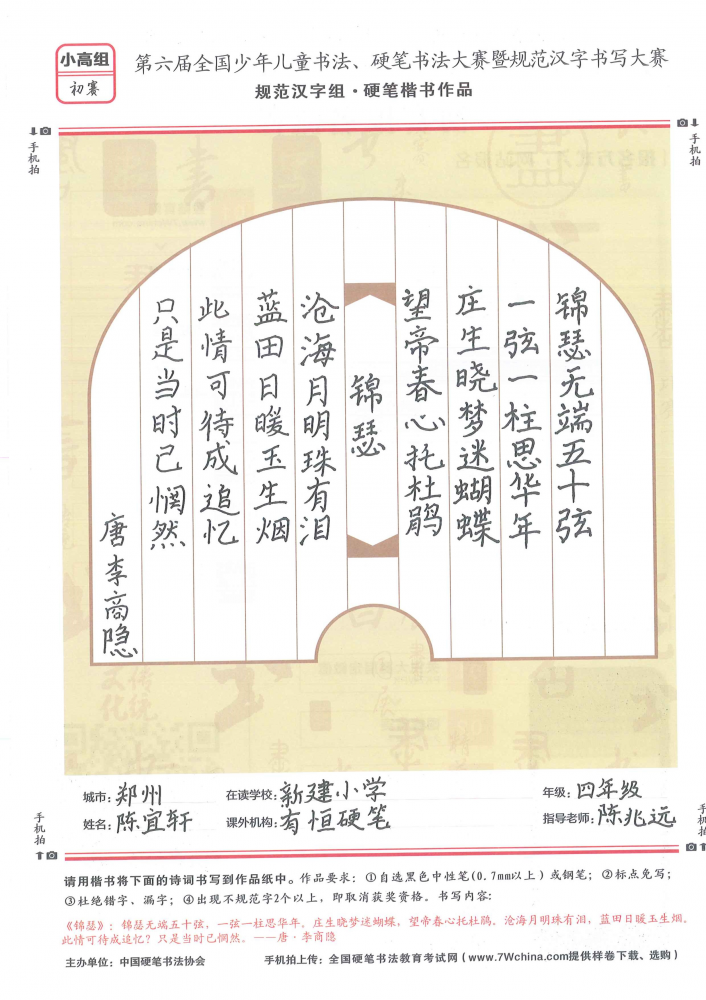 小高组
初赛
第六届全国少年儿童书法、硬笔书法大赛暨规范汉字书写大赛
规范汉字组·硬笔楷书作品
手机拍
手机拍
锦瑟无端五十弦
一弦一柱思华年
庄生晓梦迷蝴蝶
望帝春心托杜鹃
锦瑟
沧海月明珠有泪
蓝田日暖玉生烟
此情可待成追忆
只是当时已惘然
唐李商隐
城市：郑州 在读学校：新建小学 年级：四年级
姓名：陈宜轩 课外机构：有恒硬笔 指导老师：陈兆远
手机拍
手机拍
请用楷书将下面的诗词书写到作品纸中。作品要求：①自选黑色中性笔(0.7mm以上)或钢笔；②标点免写；
③杜绝错字、漏字；④出现不规范字2个以上，即取消获奖资格。书写内容：
《锦瑟》：锦瑟无端五十弦，一弦一柱思华年。庄生晓梦迷蝴蝶，望帝春心托杜鹃。沧海月明珠有泪，蓝田日暖玉生烟。
此情可待成追忆？只是当时已惘然。——唐·李商隐
主办单位：中国硬笔书法协会 手机拍上传：全国硬笔书法教育考试网（www.7Wchina.com提供样卷下载、选购）